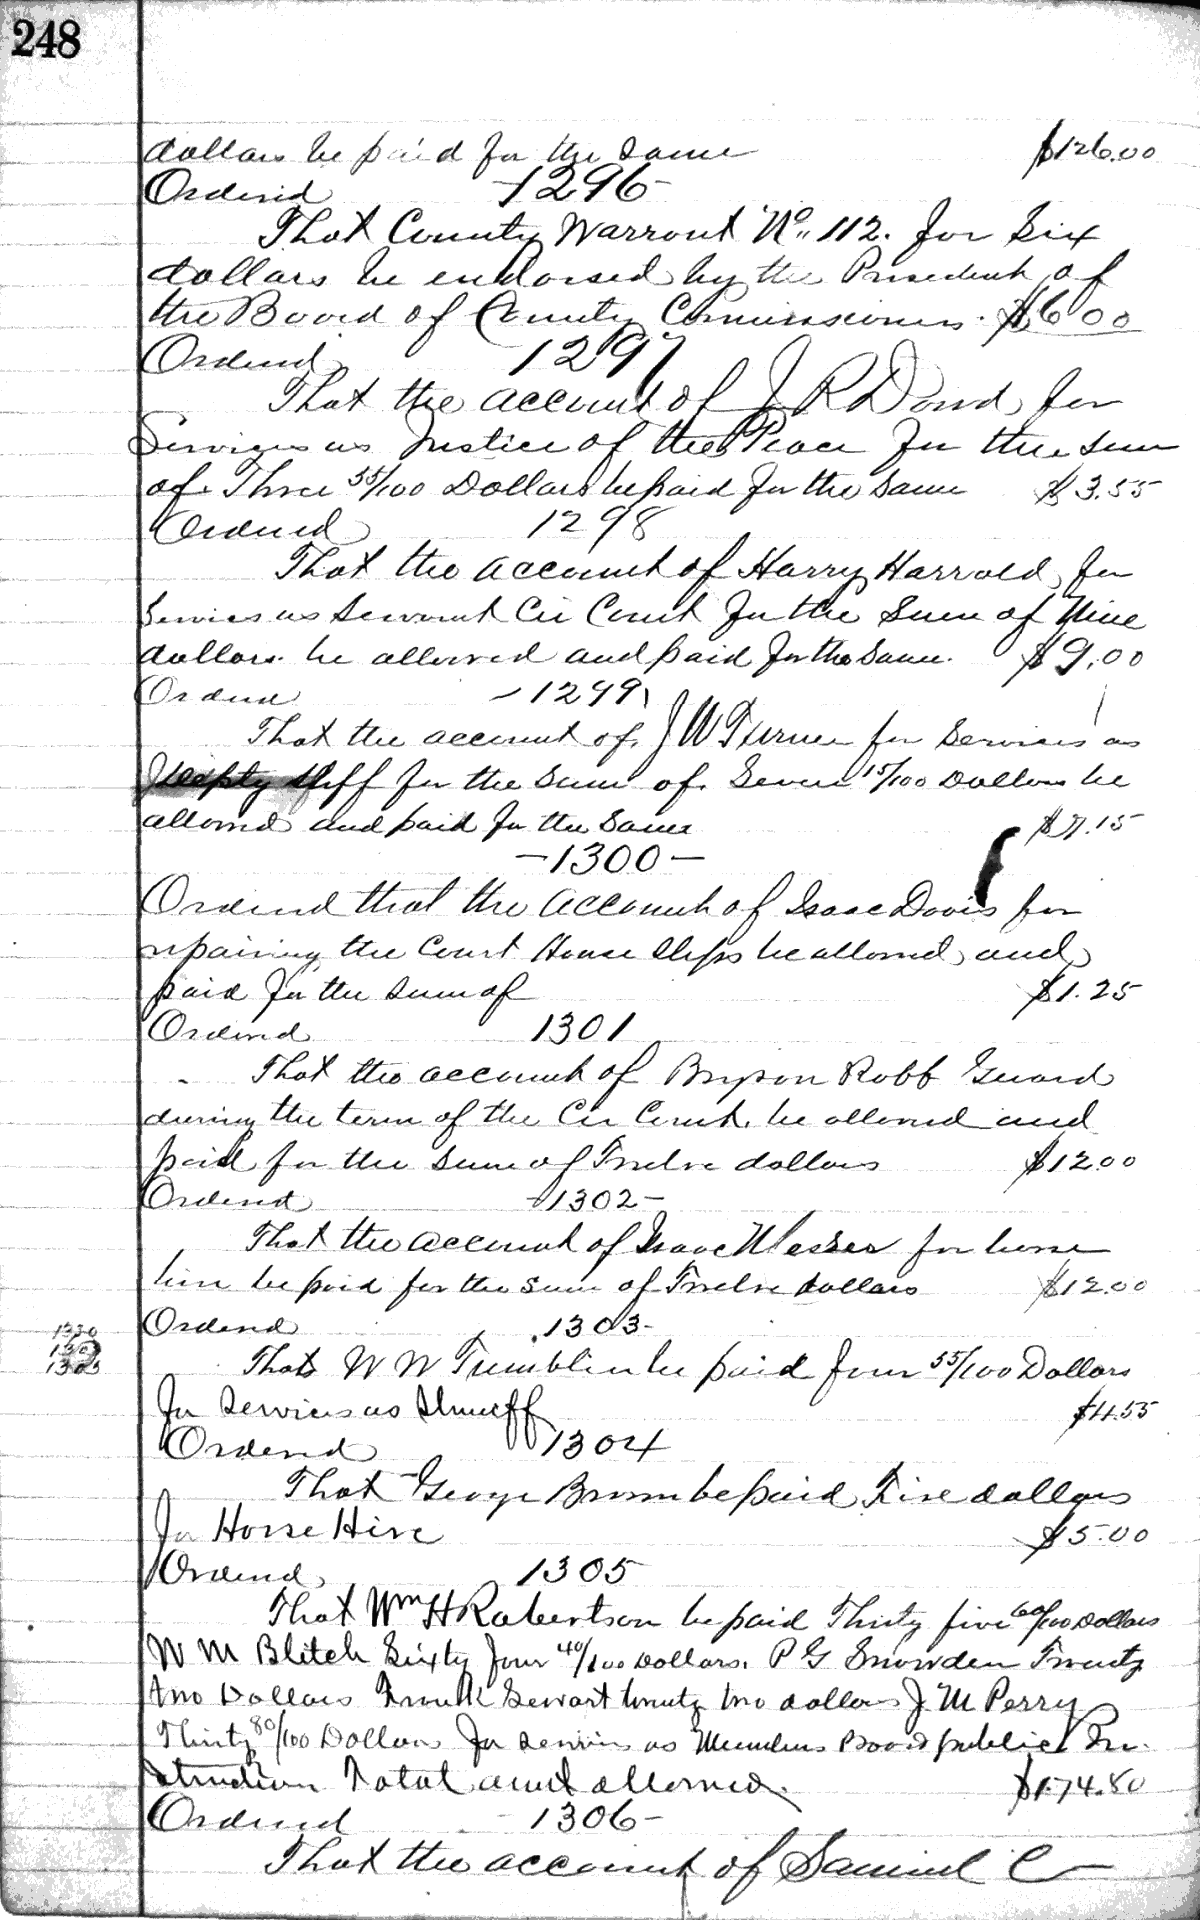 248
dollars be paid for the same $126.00
Ordered -1296-
That County Warrant No. 112. for Six
dollars be endorsed by the President of
the Board of County Commissioners. $6 00
Ordered 1297
That the account of J R Dowd, for
Services as Justice of the Peace for the sum
of Three 55/100 Dollars be paid for the same $3.55
Ordered 1298
That the account of Harry Harrold, for
Services as Servant Cir Court for the Sum of Nine
dollars be allowed and paid for the same. $9.00
Ordered -1299
That the account of J W Turner for Services as
Sheriff for the sum of Seven 15/100 Dollars be
allowed and paid for the same $7.15
-1300-
Ordered that the account of Isaac Davis for
repairing the Court House Steps be allowed and
paid for the sum of $1.25
Ordered 1301
That the account of Bryson Robb Guard
during the term of the Cir Court, be allowed and
paid for the sum of Twelve dollars $12.00
Ordered -1302-
That the account of Isaac Messer for horse
hire be paid for the sum of Twelve dollars $12.00
Ordered .1303-
1303
That W W Tumblin be paid four 55/100 Dollars
for services as Sherriff $4.55
Ordered 1304
That George Brown be paid Five dollars
for Horse Hire $5.00
Ordered 1305
That Wm H Robertson be paid Thirty five 60/100 Dollars
W M Blitch Sixty four 40/100 Dollars. P G Snowden Twenty
two Dollars Frank Sewart twenty two dollars J M Perry
Thirty 80/100 Dollars for services as Members Board public In-
struction Total amt allowed. $174.80
Ordered -1306-
That the account of Samuel C